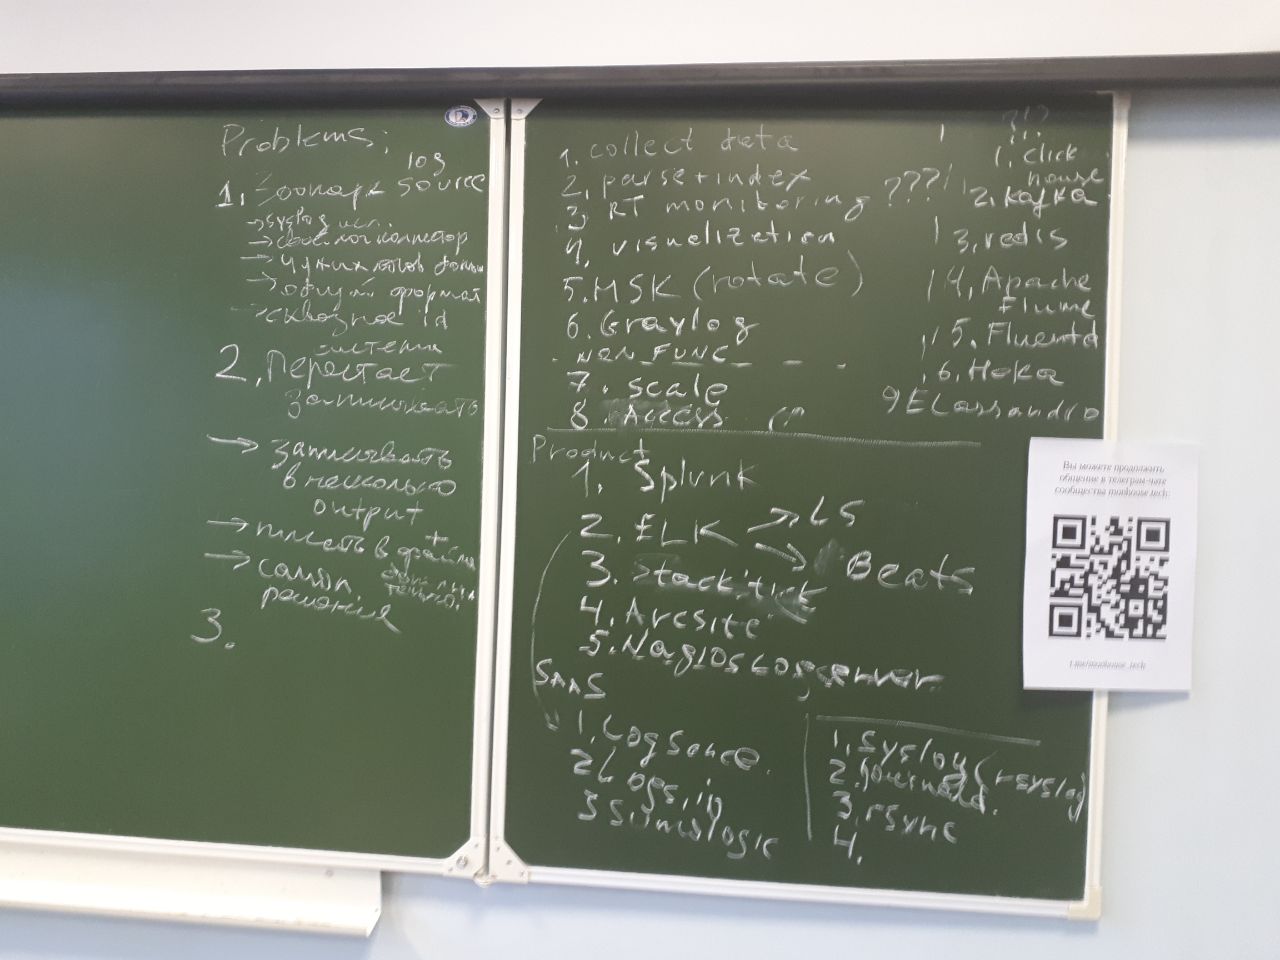 Problems:
log
1. Зоопарк source
→ syslog исп.
→ свой логколлектор
→ чужих логов
→ общий формат
→ сквозное id
система
2. Перестает
записывать
→ записывать
в несколько
output
→ писать в файл +
→ самоп
решения
3.
1. collect data
2. parse+index
3. RT monitoring ???
4. visualization
5. MSK (rotate)
6. Graylog
NON_FUNC_ - - -
7. scale
8. Access (?
?!?
1. Click
house
2. Kafka
3. redis
4. Apache
Flume
5. Fluentd
6. Heka
Product
1. Splunk
2. ELK → LS
→ Beats
3. Stack tick
4. Arcsite
5. Nagios Logserver
SAAS
1. Logsence.
2 Logs.io
3 Sumologic
1. syslog (rsyslog)
2. journald.
3. rsync
4.
Вы можете продолжить
общение в телеграм-чате
сообщества monhouse.tech:
t.me/monhouse_tech